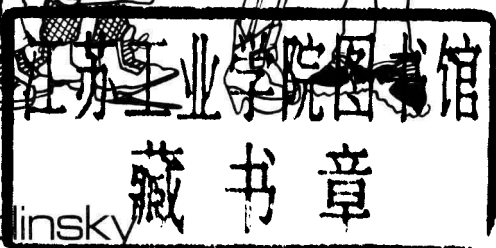 江苏工业学院图书馆
藏书章
linsky